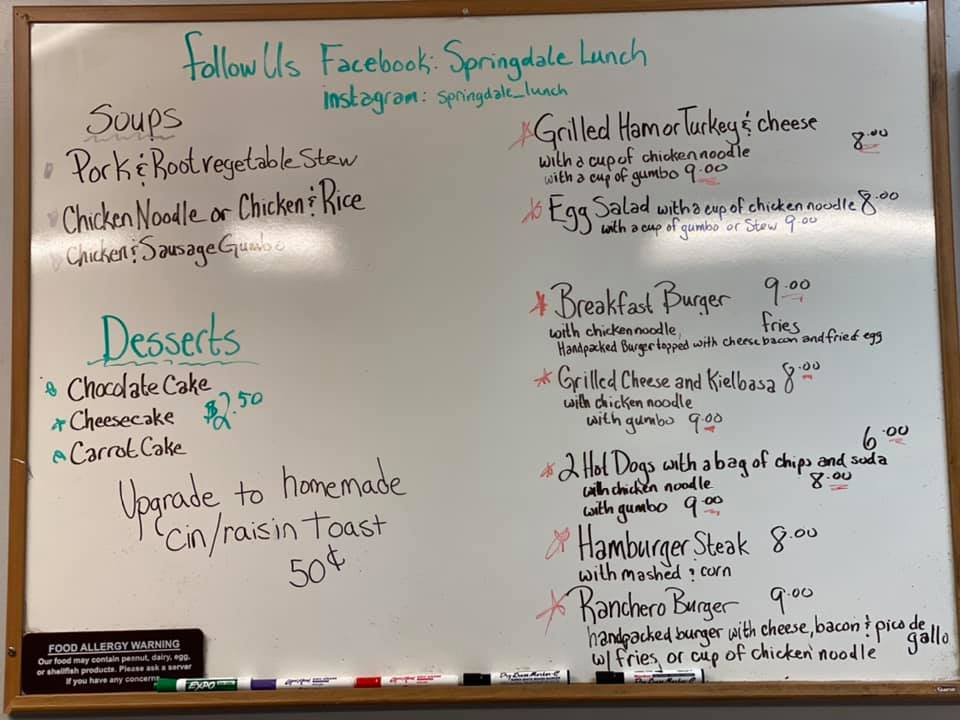 Follow Us Facebook: Springdale Lunch
instagram: springdale_lunch
Soups
Pork & Root vegetable Stew
Chicken Noodle or Chicken & Rice
Chicken & Sausage Gumbo
Desserts
Chocolate Cake
Cheesecake $2.50
Carrot Cake
Upgrade to homemade
Cin/raisin Toast
50¢
Grilled Ham or Turkey & cheese 8.00
with a cup of chicken noodle
with a cup of gumbo 9.00
Egg Salad with a cup of chicken noodle 8.00
with a cup of gumbo or Stew 9.00
Breakfast Burger 9.00
with chicken noodle, fries
Handpacked Burger topped with cheese, bacon and fried egg
Grilled Cheese and Kielbasa 8.00
with chicken noodle
with gumbo 9.00
2 Hot Dogs with a bag of chips and soda 6.00
with chicken noodle 8.00
with gumbo 9.00
Hamburger Steak 8.00
with mashed & corn
Ranchero Burger 9.00
handpacked burger with cheese, bacon & pico de gallo
w/ fries, or cup of chicken noodle
FOOD ALLERGY WARNING
Our food may contain peanut, dairy, egg,
or shellfish products. Please ask a server
if you have any concerns
EXPO